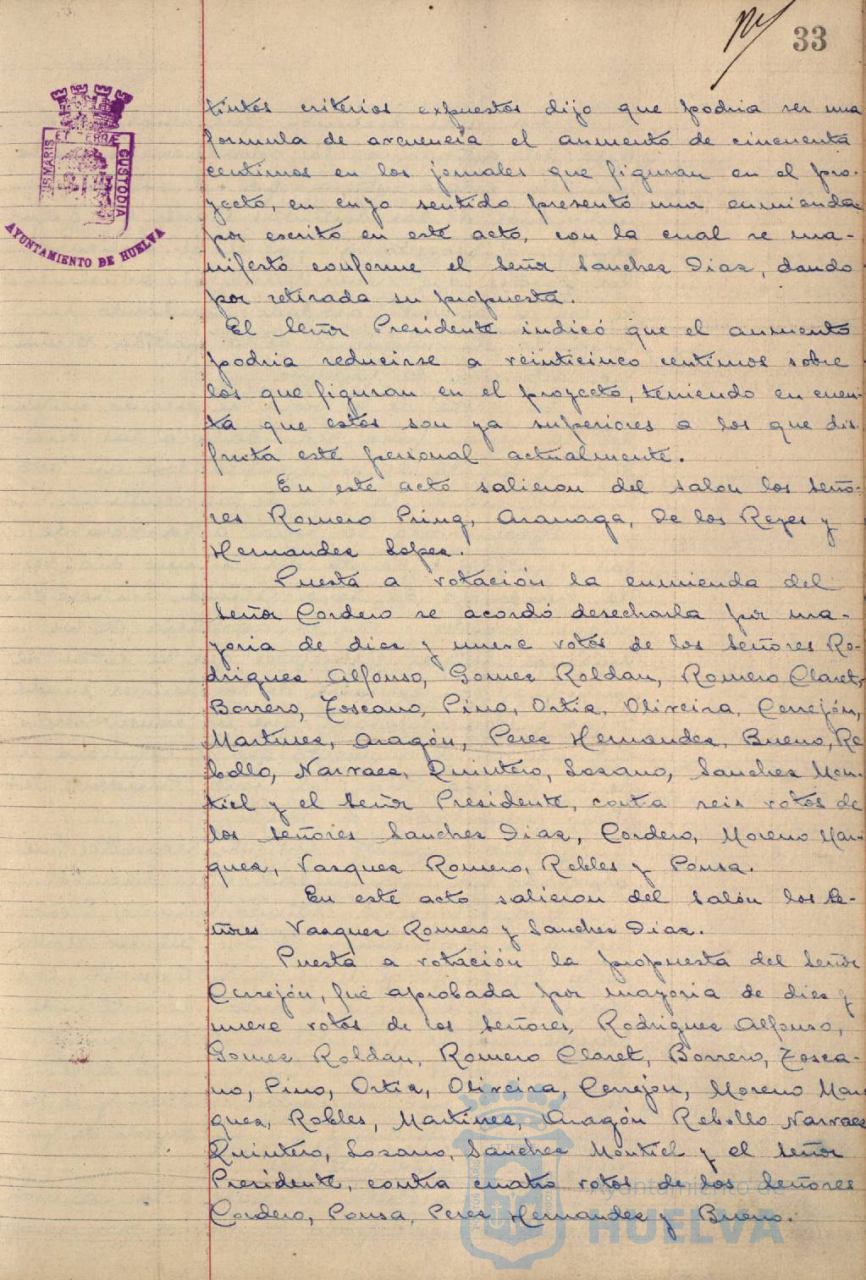 33
PORTUS MARIS ET TERRÆ CUSTODIA
AYUNTAMIENTO DE HUELVA
tintos criterios expuestos dijo que podria ser una
formula de avenencia el aumento de cincuenta
centimos en los jornales que figuran en el pro-
yecto, en cuyo sentido presentó una enmienda
por escrito en este acto, con la cual se ma-
nifestó conforme el Señor Sanchez Diaz, dando
por retirada su propuesta.
El Señor Presidente indicó que el aumento
podria reducirse a veinticinco centimos sobre
los que figuran en el proyecto, teniendo en cuen-
ta que estos son ya superiores a los que dis-
fruta este personal actualmente.
En este acto salieron del salon los Seño-
res Romero Pring, Aranaga, De los Reyes y
Hernandez Lopez.
Puesta a votación la enmienda del
Señor Cordero se acordó desecharla por ma-
yoria de diez y nueve votos de los Señores Ro-
driguez Alfonso, Gomez Roldan, Romero Claret,
Borrero, Toscano, Pino, Ortiz, Oliveira, Cerrejón,
Martinez, Aragón, Perez Hernandez, Bueno, Re-
bollo, Narvaez, Quintero, Lozano, Sanchez Mon-
tiel y el Señor Presidente, contra seis votos de
los Señores Sanchez Diaz, Cordero, Moreno Mar-
quez, Vazquez Romero, Robles y Ponsa.
En este acto salieron del salón los Se-
ñores Vazquez Romero y Sanchez Diaz.
Puesta a votación la propuesta del Señor
Cerrejón, fué aprobada por mayoria de diez y
nueve votos de los Señores, Rodriguez Alfonso,
Gomez Roldan, Romero Claret, Borrero, Tosca-
no, Pino, Ortiz, Oliveira, Cerrejon, Moreno Mar-
quez, Robles, Martinez, Aragón Rebollo Narvaez
Quintero, Lozano, Sanchez Montiel y el Señor
Presidente, contra cuatro votos de los Señores
Cordero, Ponsa, Perez Hernandez y Bueno.
Ayuntamiento de
HUELVA